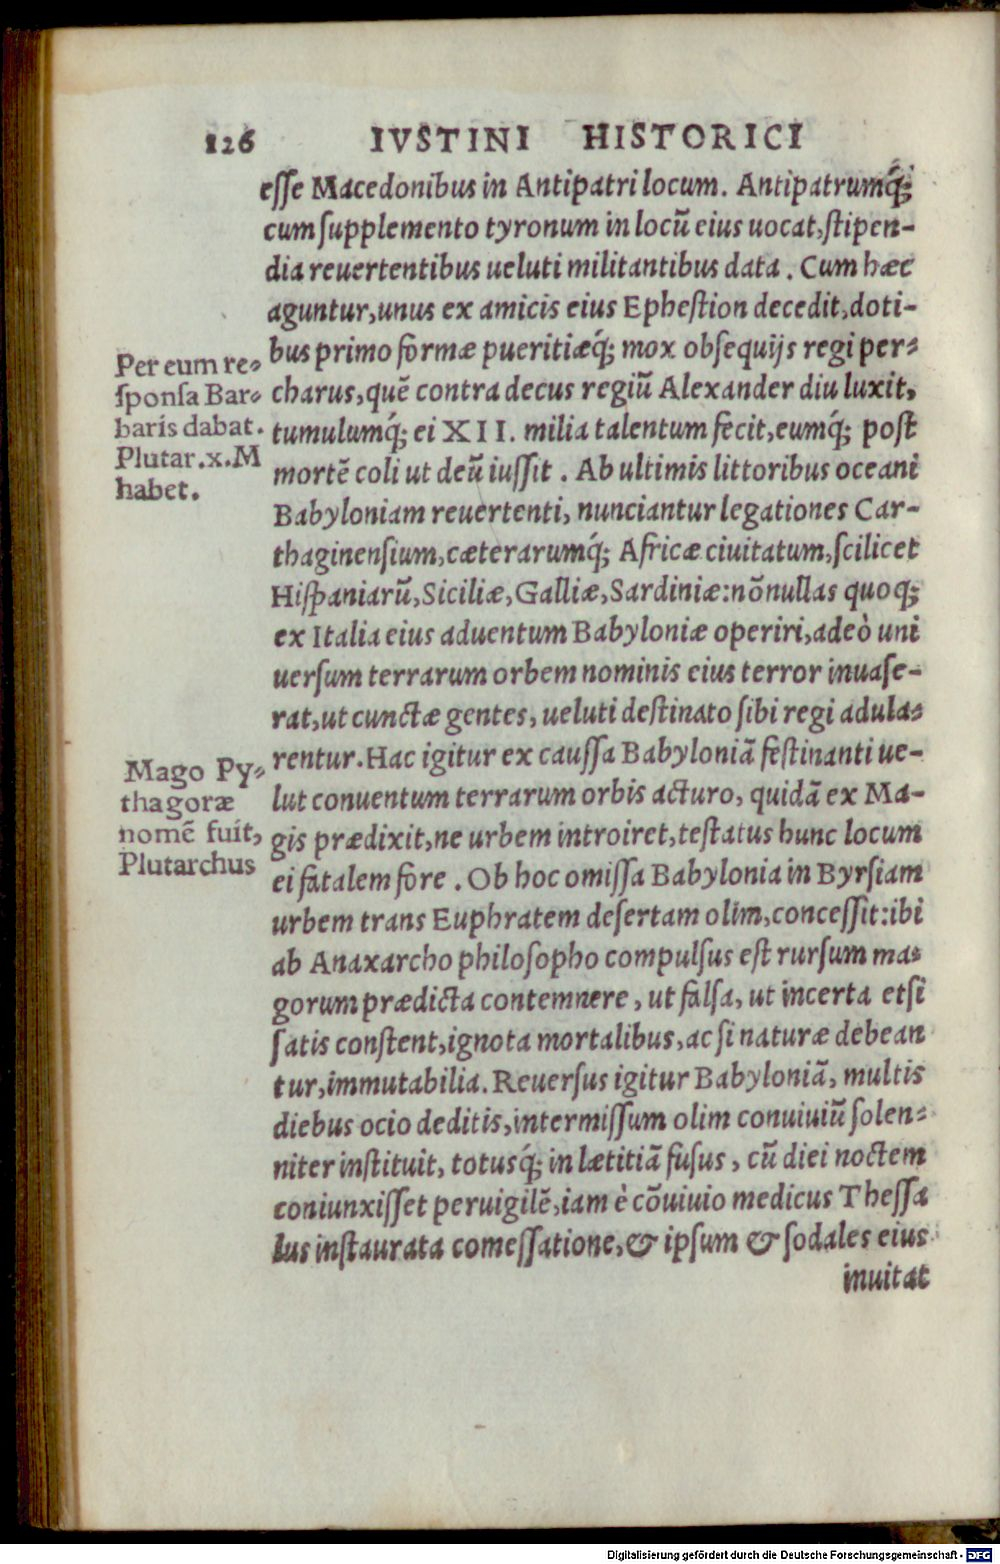 126 IVSTINI HISTORICI
esse Macedonibus in Antipatri locum. Antipatrumq́;
cum supplemento tyronum in locū eius uocat, stipen-
dia reuertentibus ueluti militantibus data. Cum hæc
aguntur, unus ex amicis eius Ephestion decedit, doti-
bus primo formæ pueritiæq́; mox obsequijs regi per-
charus, quē contra decus regiū Alexander diu luxit,
tumulumq́; ei XII. milia talentum fecit, eumq́; post
mortē coli ut deū iussit. Ab ultimis littoribus oceani
Babyloniam reuertenti, nunciantur legationes Car-
thaginensium, cæterarumq́; Africæ ciuitatum, scilicet
Hispaniarū, Siciliæ, Galliæ, Sardiniæ: nōnullas quoq;
ex Italia eius aduentum Babyloniæ operiri, adeò uni
uersum terrarum orbem nominis eius terror inuase-
rat, ut cunctæ gentes, ueluti destinato sibi regi adula-
rentur. Hac igitur ex caussa Babyloniā festinanti ue-
lut conuentum terrarum orbis acturo, quidā ex Ma-
gis prædixit, ne urbem introiret, testatus hunc locum
ei fatalem fore. Ob hoc omissa Babylonia in Byrsiam
urbem trans Euphratem desertam olim, concessit: ibi
ab Anaxarcho philosopho compulsus est rursum ma-
gorum prædicta contemnere, ut falsa, ut incerta etsi
satis constent, ignota mortalibus, ac si naturæ debean
tur, immutabilia. Reuersus igitur Babyloniā, multis
diebus ocio deditis, intermissum olim conuiuiū solen-
niter instituit, totusq́; in lætitiā fusus, cū diei noctem
coniunxisset peruigilē, iam è cōuiuio medicus Thessa
lus instaurata comessatione, & ipsum & sodales eius
inuitat
Per eum re-
sponsa Bar-
baris dabat.
Plutar.x.M
habet.
Mago Py-
thagoræ
nomē fuit,
Plutarchus
Digitalisierung gefördert durch die Deutsche Forschungsgemeinschaft - DFG